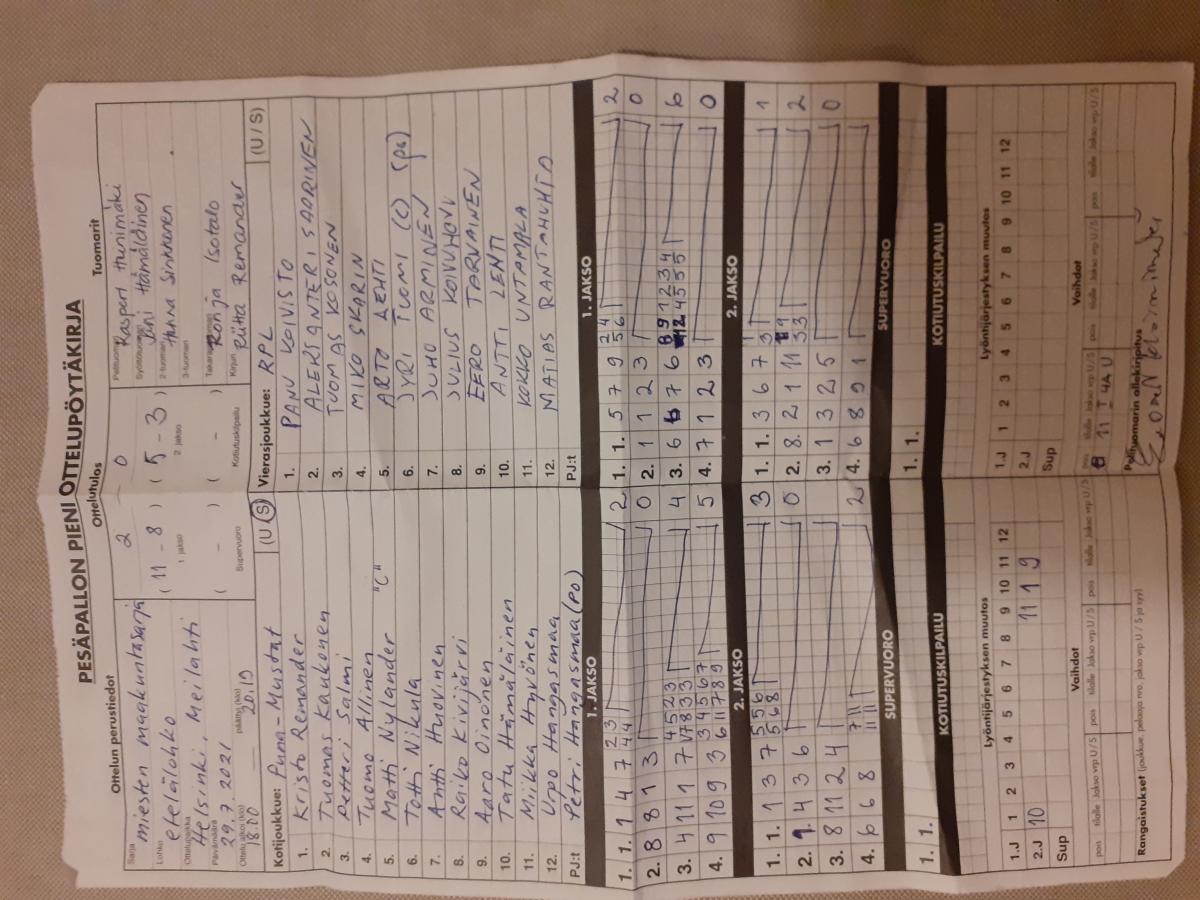 PESÄPALLON PIENI OTTELUPÖYTÄKIRJA
Ottelun perustiedot
Ottelutulos
Tuomarit
Sarja
miesten maakuntasarja
Lohko
etelälohko
Ottelupaikka
Helsinki, Meilahti
Päivämäärä
29.7.2021
Ottelu alkoi (klo)
18.10
päättyi (klo)
20.19
2 0
( 11 - 8 ) ( 5 - 3 )
1 jakso 2 jakso
( - ) ( - )
Supervuoro Kotiutuskilpailu
Pelituomari
Kasperi Hunimäki
Syöttötuomari
Jani Hämäläinen
2-tuomari
Hanna Sinkkonen
3-tuomari
Takaraja
Ronja Isotalo
Kirjuri
Riitta Remander
Kotijoukkue: Puna-Mustat (U/S)
1. Kristo Remander
2. Tuomas Kaukonen
3. Petteri Salmi
4. Tuomo Allinen
5. Matti Nylander "C"
6. Totti Nikula
7. Antti Huovinen
8. Raiko Kivijärvi
9. Aaro Oinonen
10. Tatu Hämäläinen
11. Miikka Hyvönen
12. Urpo Hangasmaa
PJ:t Petri Hangasmaa (PO)
Vierasjoukkue: RPL (U/S)
1. PANU KOIVISTO
2. ALEKSANTERI SAARINEN
3. TUOMAS KOSONEN
4. MIKO SKARIN
5. ARTO LEHTI
6. JYRI TUOMI (C) (pg)
7. JUHO ARMINEN
8. JULIUS KOIVUHOVI
9. EERO TARVAINEN
10. ANTTI LENTI
11. KOKKO UNTAMALA
12. MATIAS RANTAHUHTA
PJ:t
1. JAKSO
1. 1. 1 4 7 2 3 2
4 4
2. 8 8 1 3 0
3. 4 11 1 7 4
4. 9 10 9 3 3 4 5 6 7 5
6 11 7 8 9
1. JAKSO
1. 1. 5 7 9 2 4 2
5 6
2. 1 1 2 3 0
3. 6 6 7 6 6
4. 7 1 2 3 0
2. JAKSO
1. 1. 1 3 7 5 5 6 3
5 6 8
2. 4 3 6 0
3. 8 11 2 4
4. 6 6 8 2
2. JAKSO
1. 1. 3 6 7 3 1
2. 8. 2 1 11 2
3 3
3. 1 3 2 5 0
4. 6 8 9 1
SUPERVUORO
1. 1.
SUPERVUORO
1. 1.
KOTIUTUSKILPAILU
KOTIUTUSKILPAILU
Lyöntijärjestyksen muutos
1.J 1 2 3 4 5 6 7 8 9 10 11 12
2.J 10 11 1 9
Sup
Lyöntijärjestyksen muutos
1.J 1 2 3 4 5 6 7 8 9 10 11 12
2.J
Sup
Vaihdot
pois tilalle Jakso vrp U/S pois tilalle Jakso vrp U/S
Vaihdot
pois tilalle Jakso vrp U/S pois tilalle Jakso vrp U/S pois tilalle Jakso vrp U/S
8 11 I 4A U
Rangaistukset (joukkue, pelaaja nro, jakso vrp U / S ja syy)
Pelituomarin allekirjoitus